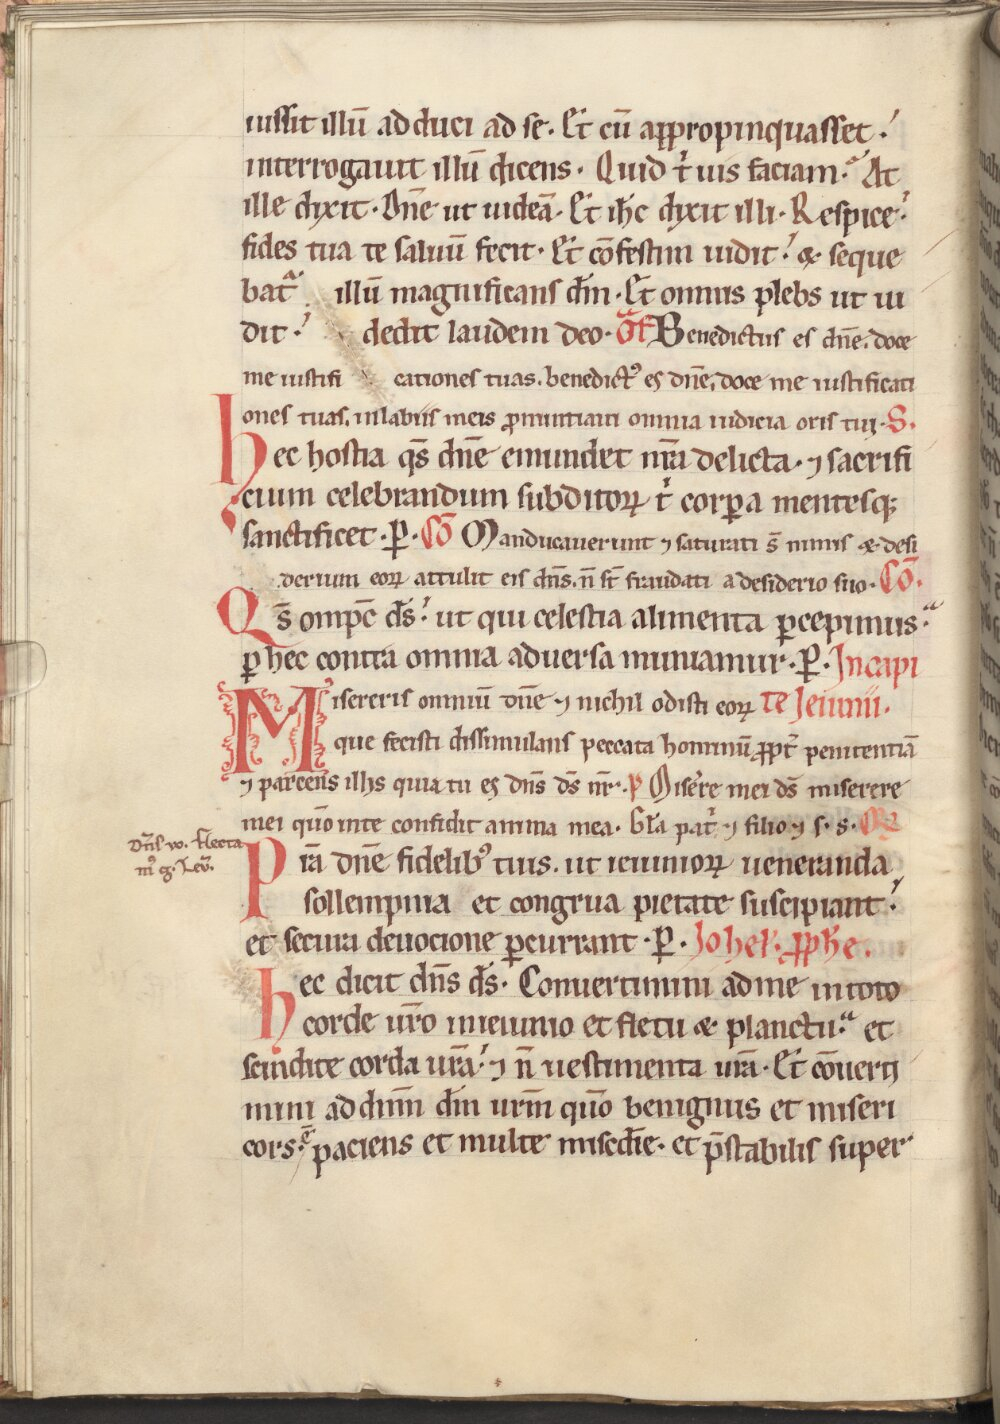 iussit illū ad duci ad se. Et cū appropinquasset.
interrogauit illū dicens. Quid t̄ uis faciam. At
ille dixit. Dn̄e ut uideā. Et ih̄c dixit illi. Respice.
fides tua te saluū fecit. Et cōfestim uidit. & seque
bat᷑ illū magnificans dm̄. Et omnis plebs ut ui
dit. dedit laudem deo. Of Benedictus es dn̄e. doce
me iustifi cationes tuas. benedictꝰ es dn̄e, doce me iustificati
ones tuas. inlabiis meis ꝓnuntiaui omnia iudicia oris tui. S.
hec hostia qs̄ dn̄e emundet nr̄a delicta. ⁊ sacrifi
cium celebrandum subditoꝝ t̄ corꝑa mentesqꝫ
sanctificet. P. Cō Manducauerunt ⁊ saturati s̄ nimis & desi
derium eoꝝ attulit eis dn̄s. n̄ st̄ fraudati a desiderio suo. Cō.
Qs̄ omp̄c ds̄. ut qui celestia alimenta ꝑcepimus.
ꝑ hec contra omnia aduersa muniamur. P. Incapi
Misereris omniū dn̄e ⁊ nichil odisti eoꝝ te Ieiunii.
que fecisti dissimulans peccata hominū ꝓpt̄ penitentiā
⁊ parcens illis quia tu es dn̄s ds̄ nr̄. p Misere mei ds̄ miserere
mei qūo inte confidit anima mea. Gl̄a pat̄ ⁊ filio ⁊ s. s. Or̄
Dn̄s w. flecta
mꝰ g. Leū.
Pr̄a dn̄e fidelibꝰ tuis. ut ieiunioꝝ ueneranda
sollempnia et congrua pietate suscipiant.
et secura deuocione ꝑcurrant. P. Iohel. ꝓphe.
hec dicit dn̄s ds̄. Conuertimini adme intoto
corde ur̄o inieiunio et fletu & planctu. et
scindite corda ur̄a. ⁊ n̄ uestimenta ur̄a. Et cōuerti
mini ad dnm̄ dm̄ urm̄ qūo benignus et miseri
cors. ē paciens et multe misc̄die. et p̄stabilis super